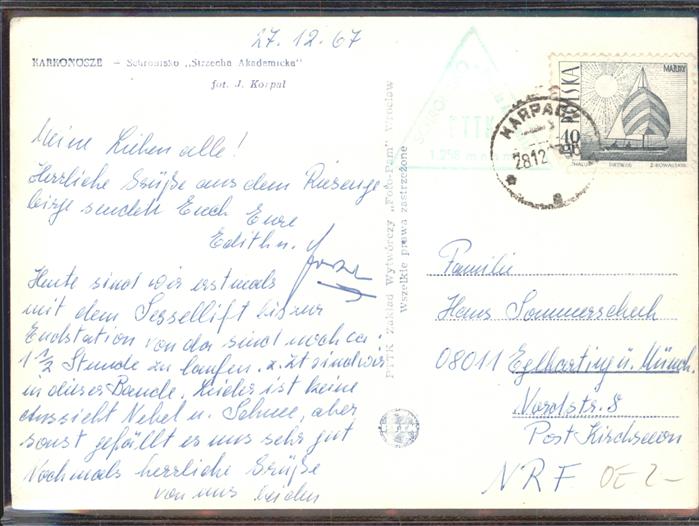 27.12.67
KARKONOSZE – Schronisko „Strzecha Akademicka"
fot. J. Korpal
Meine Lieben alle!
Herrliche Grüße aus dem Riesenge
birge senden Euch Eure
Edith u.
Heute sind wir erstmals
mit dem Sessellift bis zur
Endstation von da sind noch ca.
1 1/2 Stunde zu laufen. z. Zt sind wir
in dieser Baude. Leider ist keine
Aussicht Nebel u. Schnee, aber
sonst gefällt es uns sehr gut
Nochmals herrliche Grüße
von uns beiden
PTTK Zakład Wytwórczy „Foto-Pam" Wrocław
Wszelkie prawa zastrzeżone
SCHRONISKO
PTTK
1.258 m n.p.m.
KARPACZ
28.12
MAZURY
POLSKA
40 GR
Familie
Hans Sommerschuh
08011 Eglharting ü. Münch.
Nordstr. 8
Post Kirchseeon
NRF
OE 2-